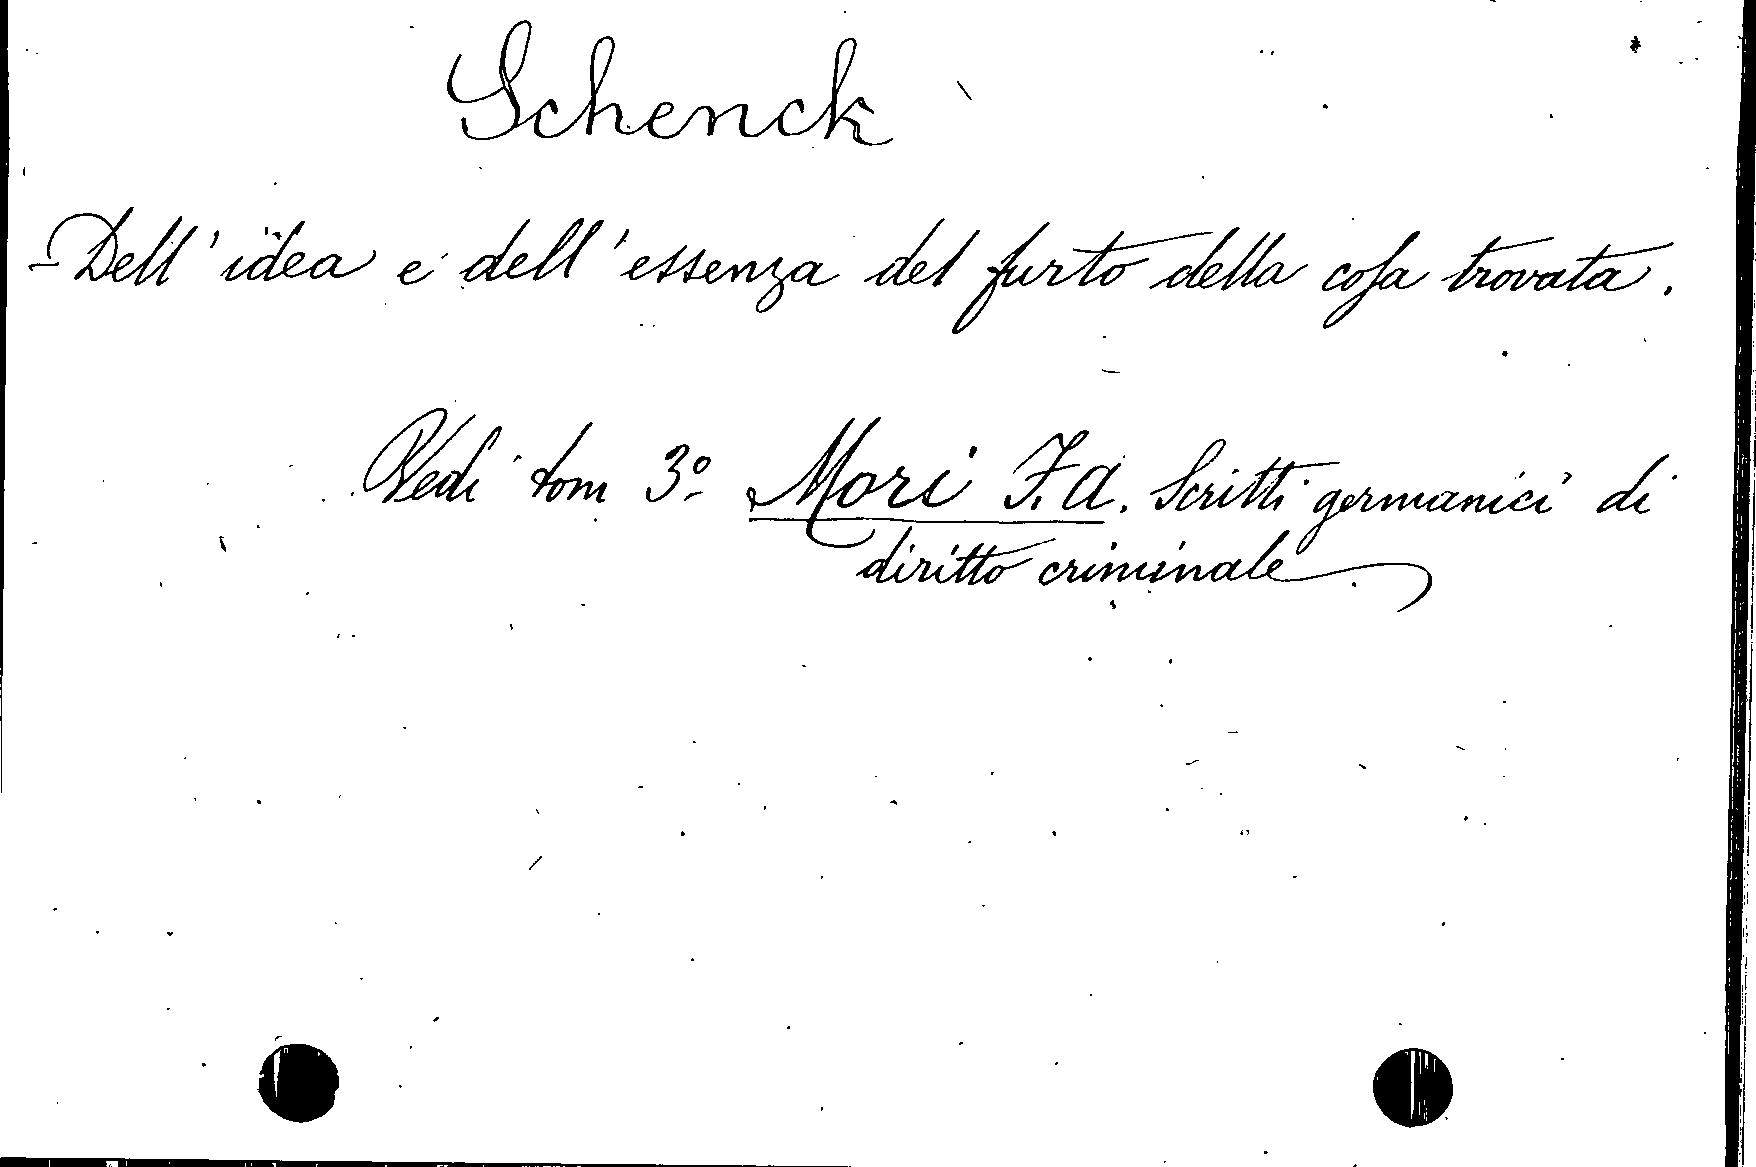 Schenck
- Dell'idea e dell'essenza del furto della cosa trovata.
Vedi tom 3º Mori F. A. Scritti germanici di
diritto criminale